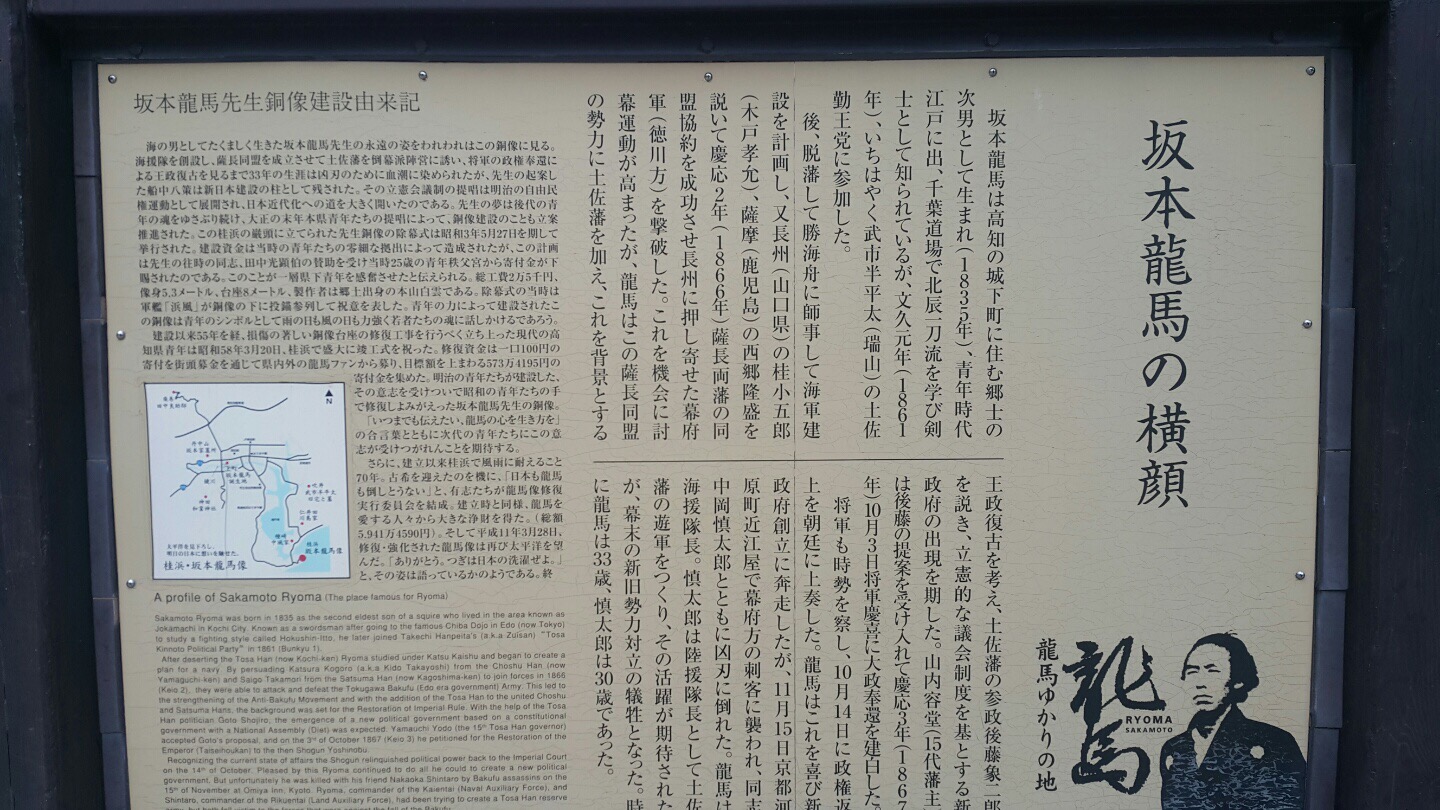 坂本龍馬の横顔
坂本龍馬は高知の城下町に住む郷士の
次男として生まれ(1835年)、青年時代
江戸に出、千葉道場で北辰一刀流を学び剣
士として知られているが、文久元年(1861
年)、いちはやく武市半平太(瑞山)の土佐
勤王党に参加した。
後、脱藩して勝海舟に師事して海軍建
設を計画し、又長州(山口県)の桂小五郎
(木戸孝允)、薩摩(鹿児島)の西郷隆盛を
説いて慶応2年(1866年)薩長両藩の同
盟協約を成功させ長州に押し寄せた幕府
軍(徳川方)を撃破した。これを機会に討
幕運動が高まったが、龍馬はこの薩長同盟
の勢力に土佐藩を加え、これを背景とする
王政復古を考え、土佐藩の参政後藤象二郎
を説き、立憲的な議会制度を基とする新
政府の出現を期した。山内容堂(15代藩主)
は後藤の提案を受け入れて慶応3年(1867
年)10月3日将軍慶喜に大政奉還を建白した。
将軍も時勢を察し、10月14日に政権返
上を朝廷に上奏した。龍馬はこれを喜び新
政府創立に奔走したが、11月15日京都河
原町近江屋で幕府方の刺客に襲われ、同志
中岡慎太郎とともに凶刃に倒れた。龍馬は
海援隊長。慎太郎は陸援隊長として土佐
藩の遊軍をつくり、その活躍が期待された
が、幕末の新旧勢力対立の犠牲となった。時
に龍馬は33歳、慎太郎は30歳であった。
龍馬ゆかりの地
龍馬
RYOMA
SAKAMOTO
坂本龍馬先生銅像建設由来記
海の男としてたくましく生きた坂本龍馬先生の永遠の姿をわれわれはこの銅像に見る。
海援隊を創設し、薩長同盟を成立させて土佐藩を倒幕派陣営に誘い、将軍の政権奉還に
よる王政復古を見るまで33年の生涯は凶刃のために血潮に染められたが、先生の起案し
た船中八策は新日本建設の柱として残された。その立憲会議制の提唱は明治の自由民
権運動として展開され、日本近代化への道を大きく開いたのである。先生の夢は後代の青
年の魂をゆさぶり続け、大正の末年本県青年たちの提唱によって、銅像建設のことも立案
推進された。この桂浜の巌頭に立てられた先生銅像の除幕式は昭和3年5月27日を期して
挙行された。建設資金は当時の青年たちの零細な拠出によって造成されたが、この計画
は先生の往時の同志、田中光顕伯の賛助を受け当時25歳の青年秩父宮から寄付金が下
賜されたのである。このことが一層県下青年を感奮させたと伝えられる。総工費2万5千円、
像身5,3メートル、台座8メートル、製作者は郷土出身の本山白雲である。除幕式の当時は
軍艦「浜風」が銅像の下に投錨参列して祝意を表した。青年の力によって建設されたこ
の銅像は青年のシンボルとして雨の日も風の日も力強く若者たちの魂に話しかけるであろう。
建設以来55年を経、損傷の著しい銅像台座の修復工事を行うべく立ち上った現代の高
知県青年は昭和58年3月20日、桂浜で盛大に竣工式を祝った。修復資金は一口100円の
寄付を街頭募金を通じて県内外の龍馬ファンから募り、目標額を上まわる573万4195円の
寄付金を集めた。明治の青年たちが建設した、
その意志を受けついで昭和の青年たちの手
で修復しよみがえった坂本龍馬先生の銅像。
「いつまでも伝えたい、龍馬の心を生き方を」
の合言葉とともに次代の青年たちにこの意
志が受けつがれんことを期待する。
さらに、建立以来桂浜で風雨に耐えること
70年。古希を迎えたのを機に、「日本も龍馬
も倒しとうない」と、有志たちが龍馬像修復
実行委員会を結成。建立時と同様、龍馬を
愛する人々から大きな浄財を得た。(総額
5,941万4590円)。そして平成11年3月28日、
修復・強化された龍馬像は再び太平洋を望
んだ。「ありがとう。つぎは日本の洗濯ぜよ。」
と、その姿は語っているかのようである。終
N
桂浜
坂本龍馬像
太平洋を見下ろし、
明日の日本に想いを馳せた。
桂浜・坂本龍馬像
A profile of Sakamoto Ryoma (The place famous for Ryoma)
Sakamoto Ryoma was born in 1835 as the second eldest son of a squire who lived in the area known as
Jokamachi in Kochi City. Known as a swordsman after going to the famous Chiba Dojo in Edo (now Tokyo)
to study a fighting style called Hokushin-Itto, he later joined Takechi Hanpeita's (a.k.a Zuisan) "Tosa
Kinnoto Political Party" in 1861 (Bunkyu 1).
After deserting the Tosa Han (now Kochi-ken) Ryoma studied under Katsu Kaishu and began to create a
plan for a navy. By persuading Katsura Kogoro (a.k.a Kido Takayoshi) from the Choshu Han (now
Yamaguchi-ken) and Saigo Takamori from the Satsuma Han (now Kagoshima-ken) to join forces in 1866
(Keio 2), they were able to attack and defeat the Tokugawa Bakufu (Edo era government) Army. This led to
the strengthening of the Anti-Bakufu Movement and with the addition of the Tosa Han to the united Choshu
and Satsuma Hans, the background was set for the Restoration of Imperial Rule. With the help of the Tosa
Han politician Goto Shojiro, the emergence of a new political government based on a constitutional
government with a National Assembly (Diet) was expected. Yamauchi Yodo (the 15th Tosa Han governor)
accepted Goto's proposal, and on the 3rd of October 1867 (Keio 3) he petitioned for the Restoration of the
Emperor (Taiseihoukan) to the then Shogun Yoshinobu.
Recognizing the current state of affairs the Shogun relinquished political power back to the Imperial Court
on the 14th of October. Pleased by this Ryoma continued to do all he could to create a new political
government. But unfortunately he was killed with his friend Nakaoka Shintaro by Bakufu assassins on the
15th of November at Omiya Inn; Kyoto. Ryoma, commander of the Kaientai (Naval Auxiliary Force), and
Shintaro, commander of the Rikuentai (Land Auxiliary Force), had been trying to create a Tosa Han reserve